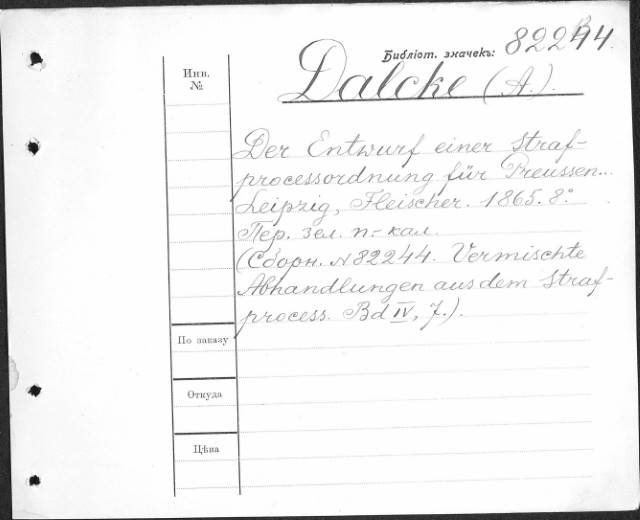 Библіот. значекъ: 82244.
Инв.
№
Dalcke (A.).
Der Entwurf einer Straf-
processordnung für Preussen...
Leipzig, Fleischer. 1865. 8.°
Пер. зел. п.-кал.
(Сборн. N 82244. Vermischte
Abhandlungen aus dem Straf-
process. Bd IV, 7.).
По заказу
Откуда
Цѣна